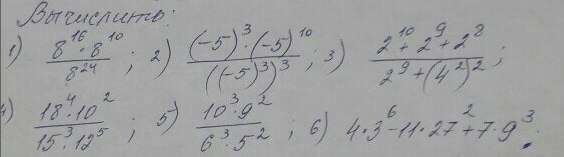 Вычислить:
1) \frac{8^{16} \cdot 8^{10}}{8^{24}} ; 2) \frac{(-5)^3 \cdot (-5)^{10}}{((-5)^3)^3} ; 3) \frac{2^{10} + 2^9 + 2^8}{2^9 + (4^2)^2} ;
4) \frac{18^4 \cdot 10^2}{15^3 \cdot 12^5} ; 5) \frac{10^3 \cdot 9^2}{6^3 \cdot 5^2} ; 6) 4 \cdot 3^6 - 11 \cdot 27^2 + 7 \cdot 9^3.